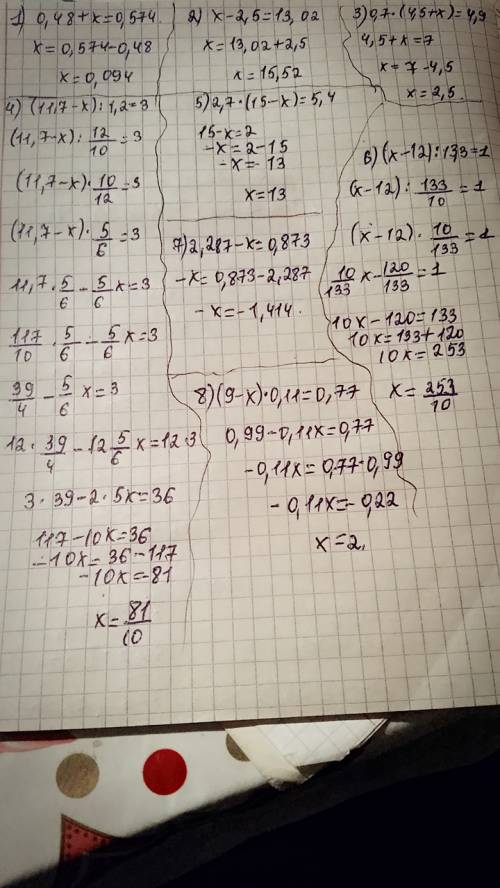 1) 0,48+x=0,574
x=0,574-0,48
x=0,094
2) x-2,5=13,02
x=13,02+2,5
x=15,52
3) 0,7·(4,5+x)=4,9
4,5+x=7
x=7-4,5
x=2,5.
4) (11,7-x):1,2=3
(11,7-x):12/10=3
(11,7-x)·10/12=3
(11,7-x)·5/6=3
11,7·5/6-5/6x=3
117/10·5/6-5/6x=3
39/4-5/6x=3
12·39/4-12 5/6x=12·3
3·39-2·5x=36
117-10x=36
-10x=36-117
-10x=-81
x=81/10
5) 2,7·(15-x)=5,4
15-x=2
-x=2-15
-x=-13
x=13
6) (x-12):13,3=1
(x-12):133/10=1
(x-12)·10/133=1
10/133x-120/133=1
10x-120=133
10x=133+120
10x=253
x=253/10
7) 2,287-x=0,873
-x=0,873-2,287
-x=-1,414.
8) (9-x)·0,11=0,77
0,99-0,11x=0,77
-0,11x=0,77-0,99
-0,11x=-0,22
x=2.